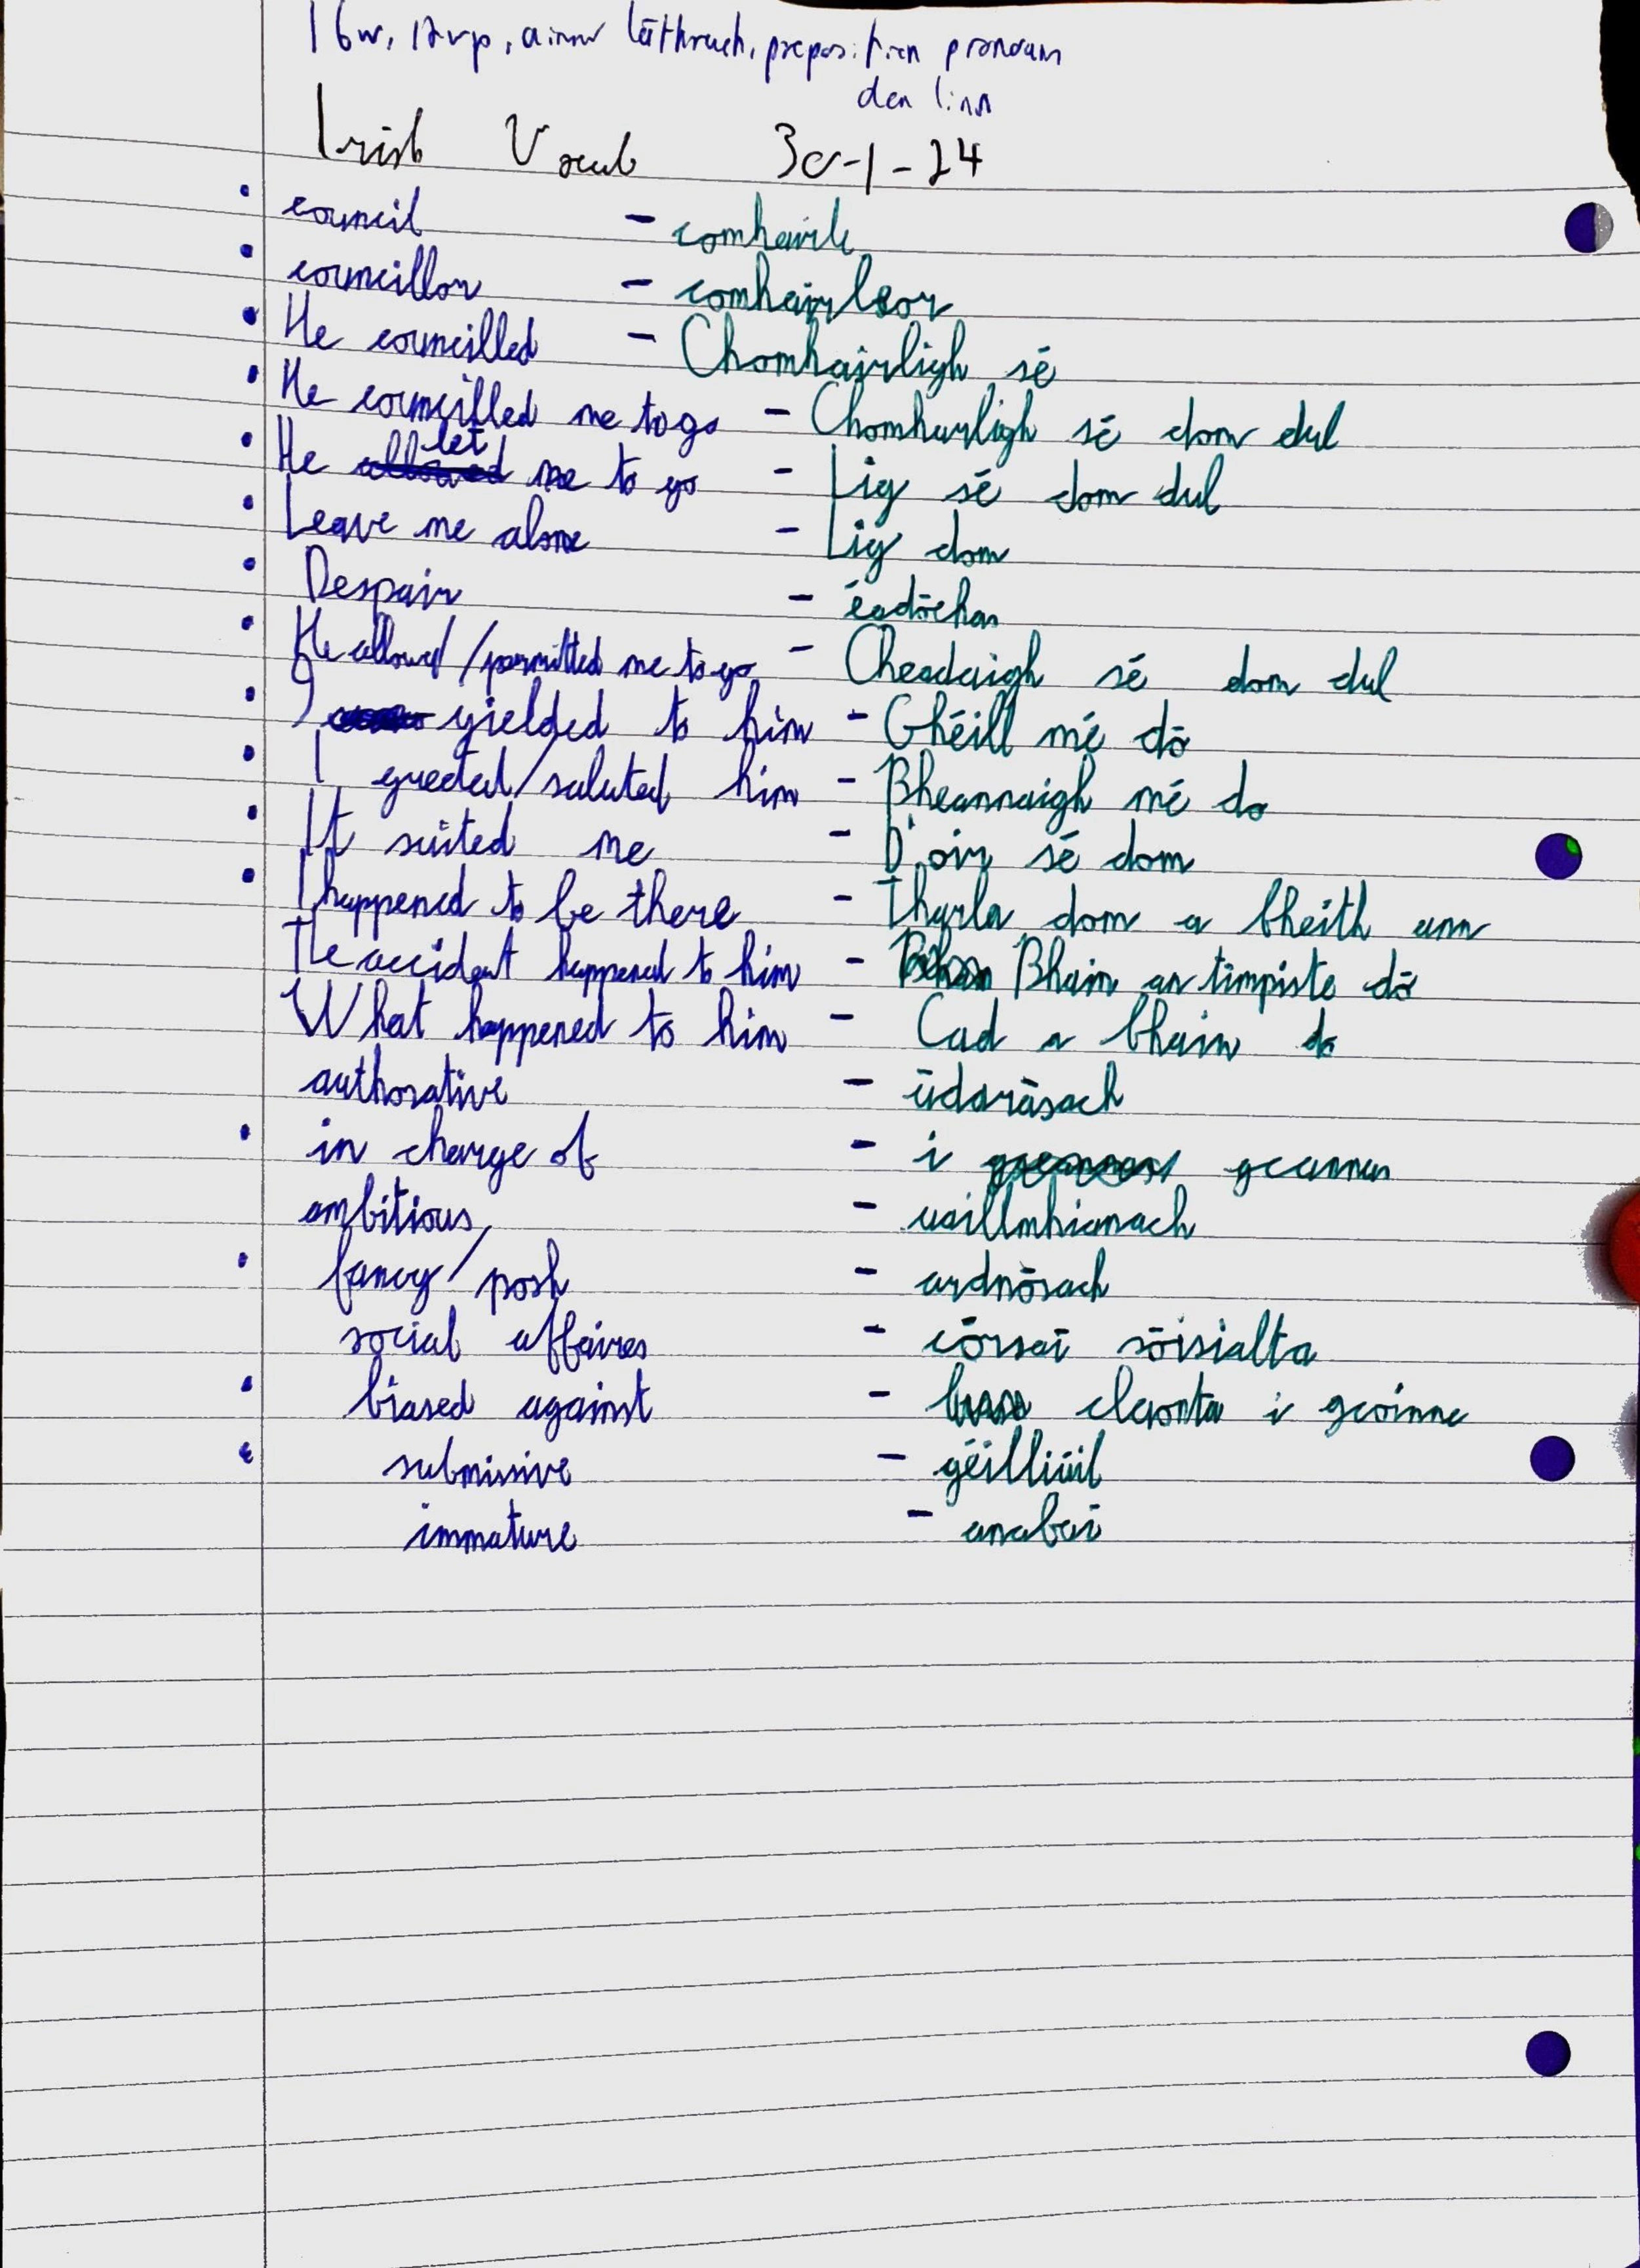 16w, 12vp, ainm láthrach, preposition pronoun
den linn
Irish Vocab 30-1-24
• council - comhairle
• councillor - comhairleoir
• He councilled - Chomhairligh sé
• He councilled me to go - Chomhairligh sé dom dul
• He let me to go - Lig sé dom dul
• Leave me alone - Lig dom
• Despair - éadóchas
• He allowed/permitted me to go - Cheadaigh sé dom dul
• I yielded to him - Ghéill mé dó
• I greeted/saluted him - Bheannaigh mé do
• It suited me - D'oir sé dom
• I happened to be there - Tharla dom a bheith ann
The accident happened to him - Bhain an timpiste dó
What happened to him - Cad a bhain do
authorative - údarásach
• in charge of - i gceannas
ambitious - uaillmhianach
• fancy/posh - ardnósach
social affaires - córsaí sóisialta
• biased against - claonta i gcoinne
• submissive - géilliúil
immature - anabaí